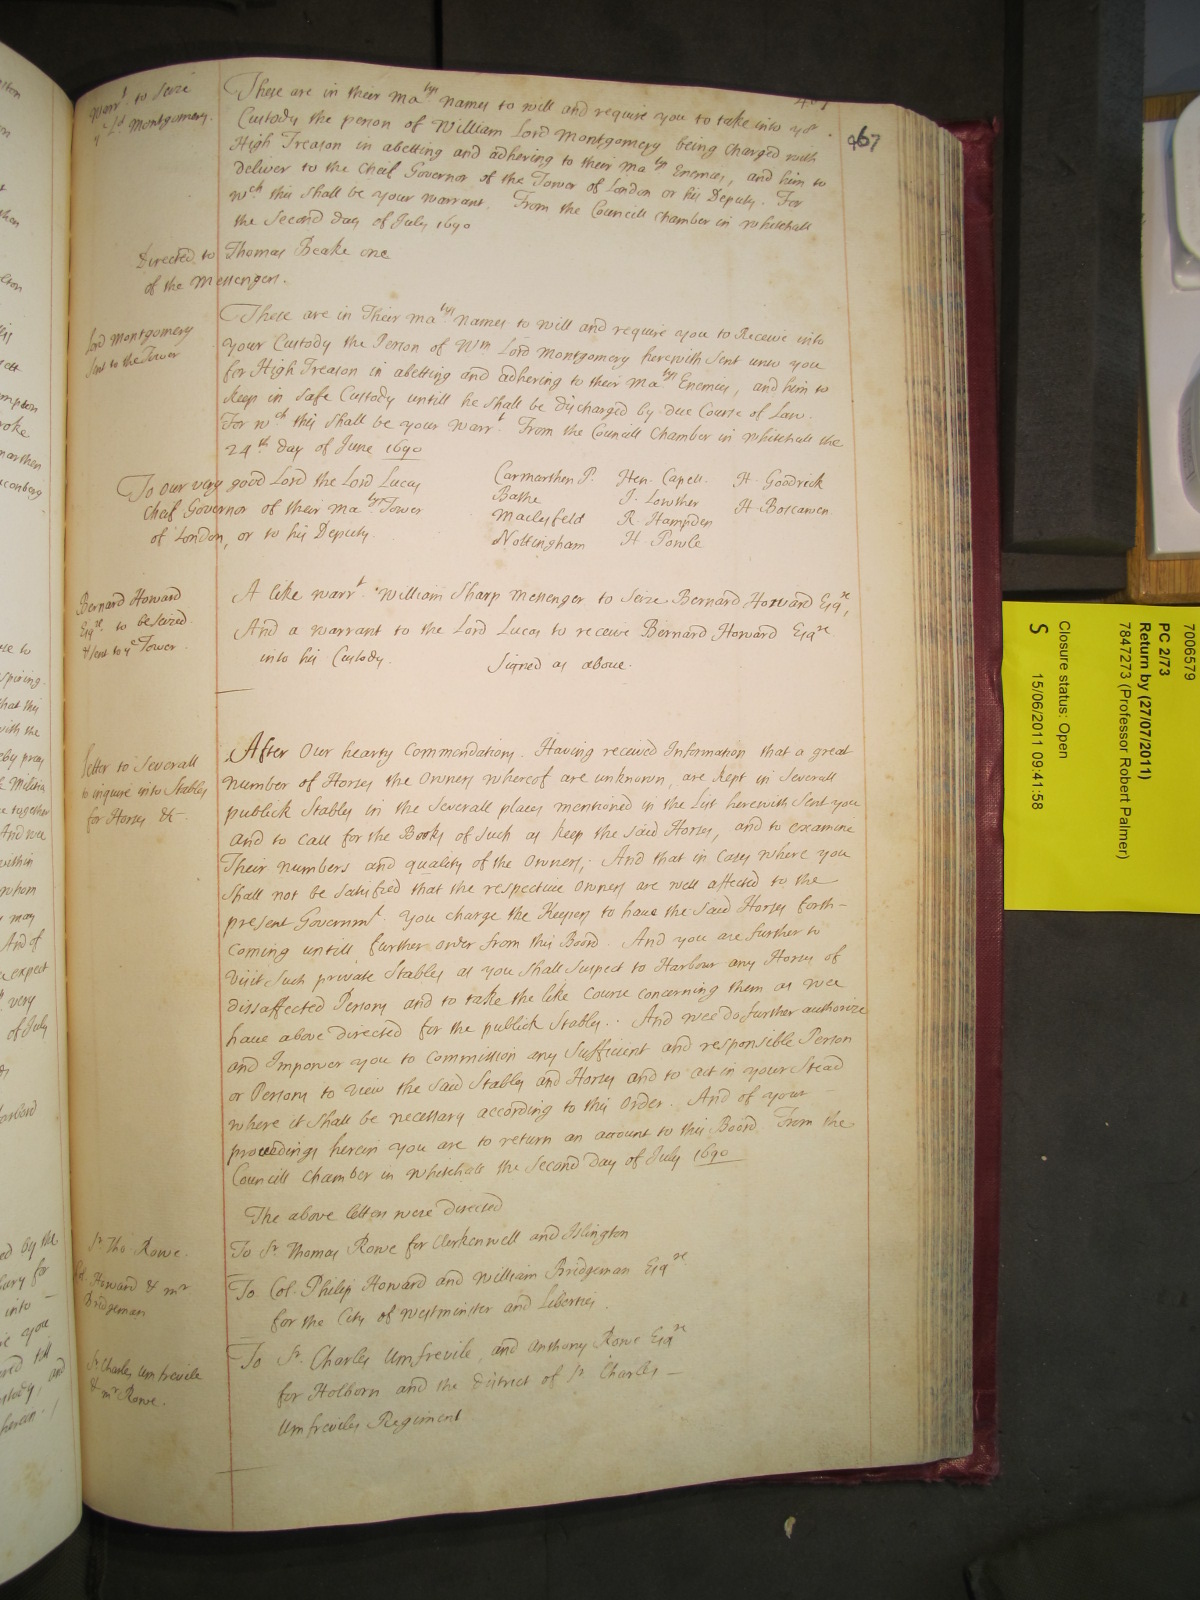 Warrt. to Seize
ye Ld Montgomery.
These are in their Matys names to will and require you to take into yor
Custody the person of William Lord Montgomery being Charged with
High Treason in abetting and adhering to their Matys Enemies, and him to
deliver to the Cheif Governor of the Tower of London or his Deputy. For
wch this shall be your warrant. From the Councill Chamber in Whitehall
the Second day of July 1690
467
Directed to Thomas Beake one
of the Messengers.
Lord Montgomery
sent to the Tower
These are in Their Matys names to will and require you to Receive into
your Custody the Person of Wm Lord Montgomery herewith sent unto you
for High Treason in abetting and adhering to their Matys Enemies, and him to
keep in safe Custody untill he shall be discharged by due Course of Law.
For wch this shall be your warrt. From the Councill Chamber in Whitehall the
24th day of June 1690
To our very good Lord the Lord Lucas
cheif Governor of their Matys Tower
of London, or to his Deputy.
Carmarthen P. Hen. Capell. H. Goodrick
Bathe J. Lowther H. Boscawen
Maclesfeld R. Hampden
Nottingham H. Powle
Bernard Howard
Esqre. to be seized
& sent to ye Tower.
A like warrt. William Sharp Messenger to seize Bernard Howard Esqre,
And a warrant to the Lord Lucas to receive Bernard Howard Esqre.
into his Custody. Signed as above.
Letter to Severall
to inquire into Stables
for Horses &c.
After Our hearty Commendations. Having received Information that a great
number of Horses the Owners whereof are unknown, are kept in Severall
publick Stables in the Severall places mentioned in the List herewith Sent you
and to call for the Books of such as keep the said Horses, and to examine
Their numbers and quality of the Owners; And that in Cases where you
shall not be satisfied that the respective Owners are well affected to the
present Governmt. you charge the Keepers to have the said Horses forth-
coming untill further order from this Board. And you are further to
visit such private Stables as you shall suspect to Harbour any Horses of
dissaffected Persons and to take the like Course concerning them as wee
have above directed for the publick Stables. And wee do further authorize
and Impower you to Commission any Sufficient and responsible Person
or Persons to view the said Stables and Horses and to act in your Stead
where it shall be necessary according to this Order. And of your
proceedings herein you are to return an account to this Board. From the
Councill Chamber in Whitehall the Second day of July 1690
The above letters were directed
Sr. Tho: Rowe.
To Sr. Thomas Rowe for Clerkenwell and Islington
Col. Howard & mr
Bridgeman
To Col. Philip Howard and William Bridgeman Esqre
for the City of Westminster and Liberties.
Sr. Charles Umfrevile
& mr Rowe.
To Sr. Charles Umfrevile, and Anthony Rowe Esqre
for Holborn and the district of Sr. Charles
Umfreviles Regiment
7006579
PC 2/73
Return by (27/07/2011)
7847273 (Professor Robert Palmer)
Closure status: Open
S 15/06/2011 09:41:58